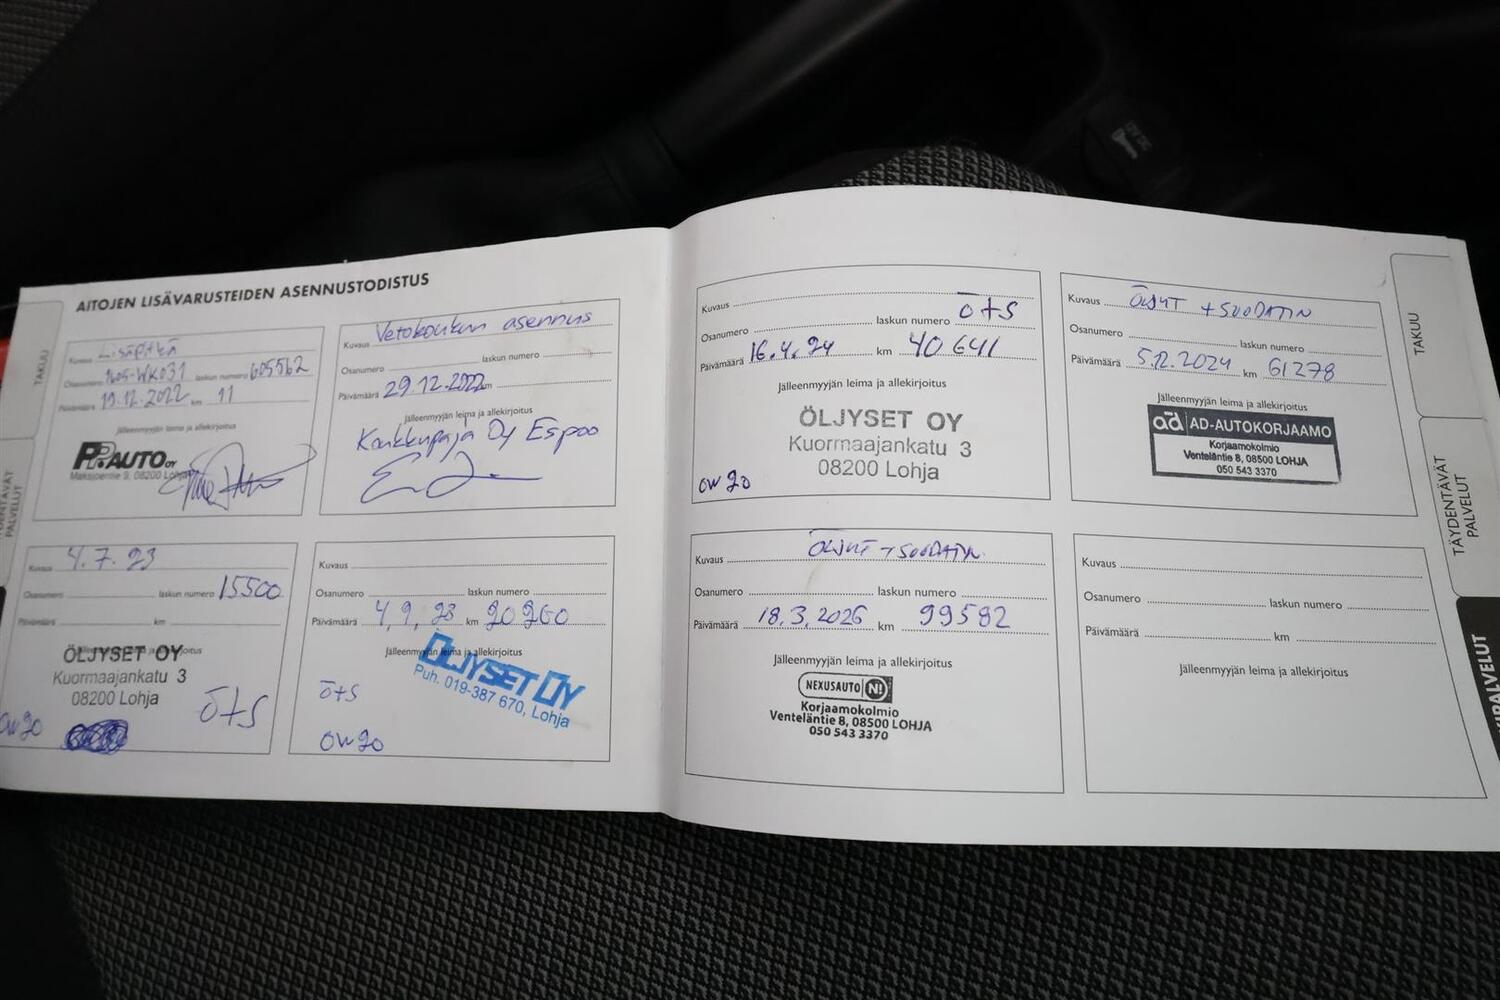 AITOJEN LISÄVARUSTEIDEN ASENNUSTODISTUS
TAKUU
TÄYDENTÄVÄT
PALVELUT
Kuvaus Lisäpitkä
Osanumero laskun numero 605562
Päivämäärä 19.12.2022 km 11
Jälleenmyyjän leima ja allekirjoitus
PP.AUTO OY
08200 Lohja
Kuvaus Vetokoukun asennus
Osanumero laskun numero
Päivämäärä 29.12.2022 km
Jälleenmyyjän leima ja allekirjoitus
Koukkupaja Oy Espoo
Kuvaus 4.7.23
Osanumero laskun numero 15500
Päivämäärä km
ÖLJYSET OY
Kuormaajankatu 3
08200 Lohja
Ö+S
0W20
Kuvaus
Osanumero laskun numero
Päivämäärä 4.9.23 km 20260
Jälleenmyyjän leima ja allekirjoitus
ÖLJYSET OY
Puh. 019-387 670, Lohja
Ö+S
0W20
Kuvaus Ö+S
Osanumero laskun numero
Päivämäärä 16.4.24 km 40641
Jälleenmyyjän leima ja allekirjoitus
ÖLJYSET OY
Kuormaajankatu 3
08200 Lohja
0W20
Kuvaus ÖLJYT + SUODATIN
Osanumero laskun numero
Päivämäärä 5.12.2024 km 61278
Jälleenmyyjän leima ja allekirjoitus
ad AD-AUTOKORJAAMO
Korjaamokolmio
Venteläntie 8, 08500 LOHJA
050 543 3370
Kuvaus ÖLJYT + SUODATIN
Osanumero laskun numero
Päivämäärä 18.3.2026 km 99582
Jälleenmyyjän leima ja allekirjoitus
NEXUSAUTO N!
Korjaamokolmio
Venteläntie 8, 08500 LOHJA
050 543 3370
Kuvaus
Osanumero laskun numero
Päivämäärä km
Jälleenmyyjän leima ja allekirjoitus
TAKUU
TÄYDENTÄVÄT
PALVELUT